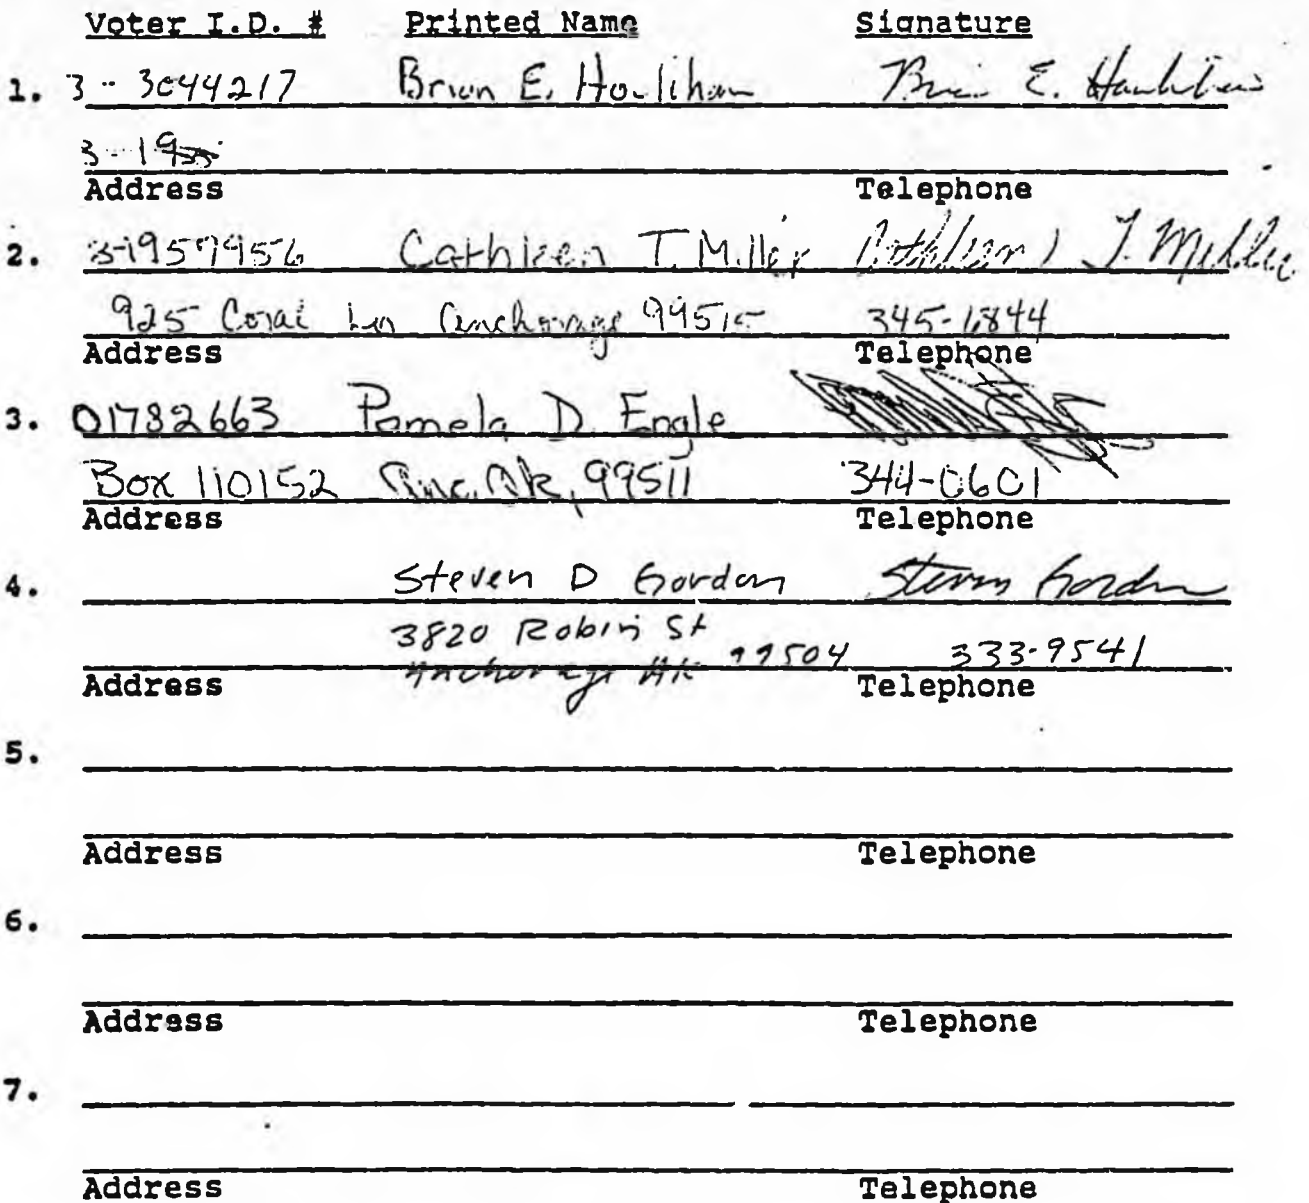 Voter I.D. # Printed Name Signature
1. 3-3044217 Brian E. Houlihan Brian E. Houlihan
3-19
Address Telephone
2. 3-1957956 Cathleen T. Miller Cathleen T. Miller
925 Coral Ln Anchorage 99515 345-1844
Address Telephone
3. 01782663 Pamela D. Engle
Box 110152 Anc. Ak, 99511 344-0601
Address Telephone
4. Steven D Gordon Steven Gordon
3820 Robin St
Anchorage AK 99504 333-9541
Address Telephone
5.
Address Telephone
6.
Address Telephone
7.
Address Telephone